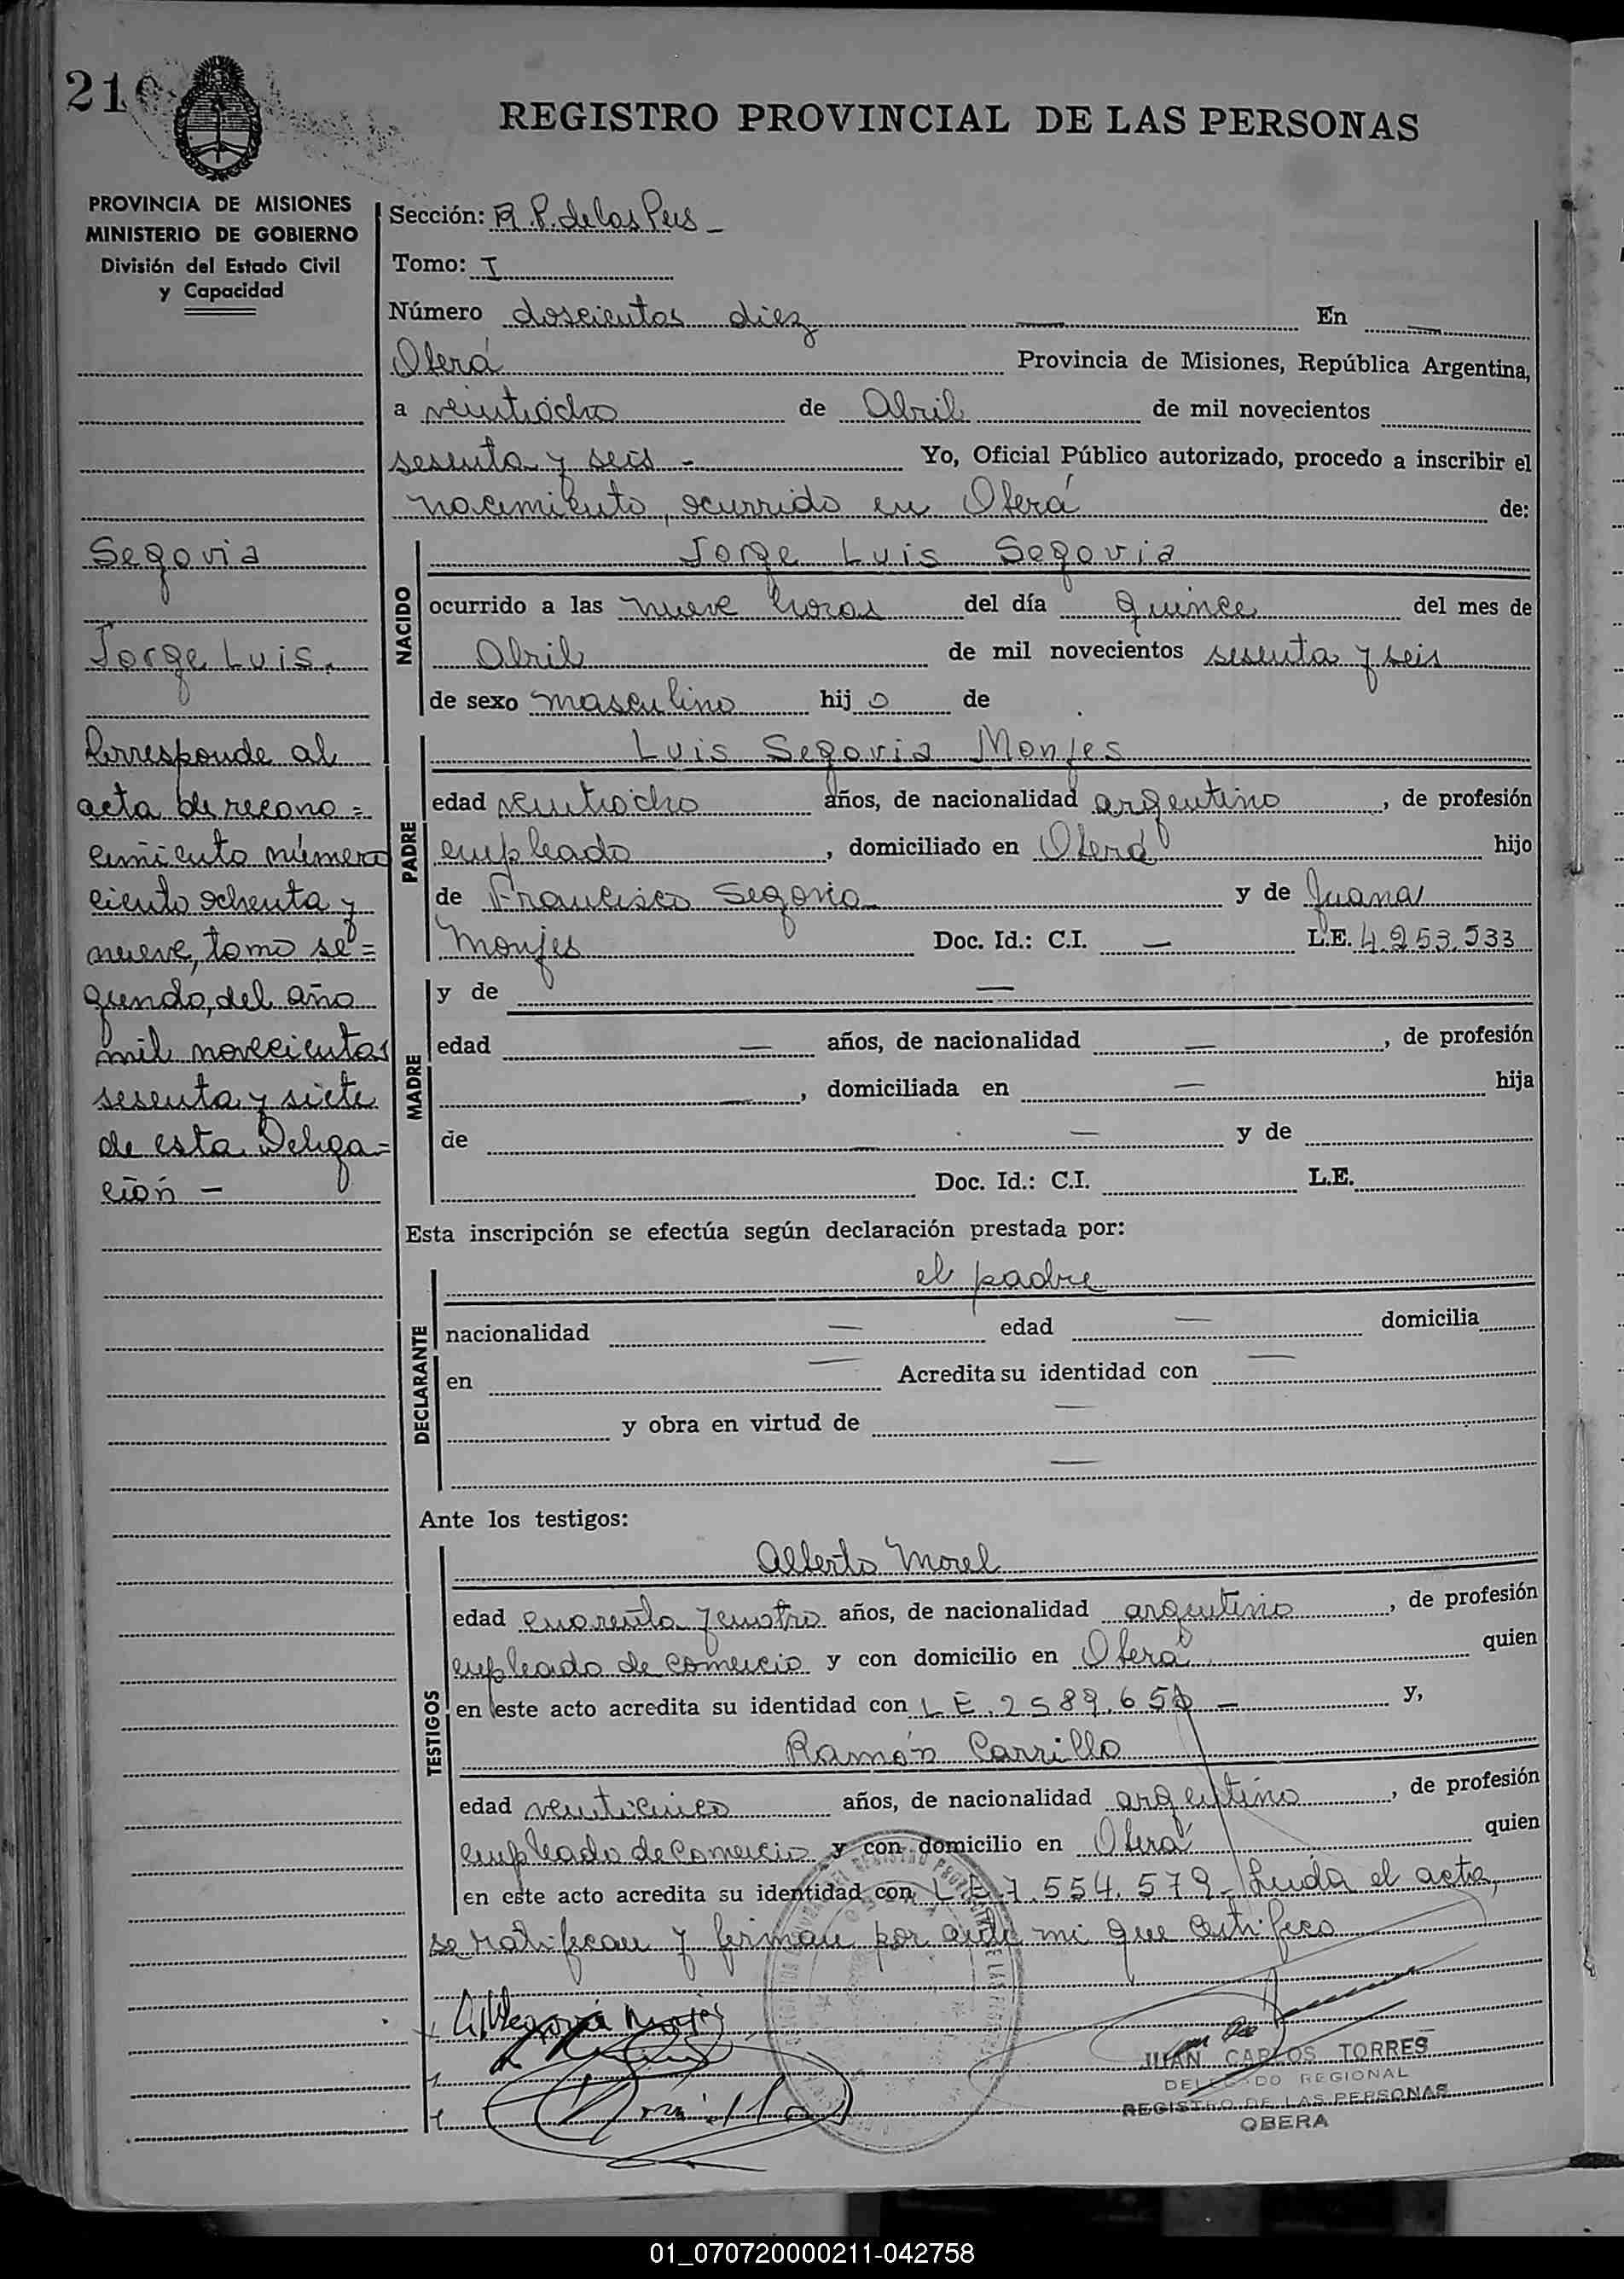 210
REGISTRO PROVINCIAL DE LAS PERSONAS
PROVINCIA DE MISIONES
MINISTERIO DE GOBIERNO
División del Estado Civil
y Capacidad
Segovia
Jorge Luis.
Corresponde al
acta de recono=
cimiento número
ciento ochenta y
nueve, tomo se=
gundo, del año
mil novecientos
sesenta y siete
de esta Delega=
ción -
Sección: R. P. de las Pers -
Tomo: I
Número doscientos diez — En —
Oberá Provincia de Misiones, República Argentina,
a veintiócho de Abril de mil novecientos
sesenta y seis - Yo, Oficial Público autorizado, procedo a inscribir el
nacimiento, ocurrido en Oberá de:
NACIDO
Jorge Luis Segovia
ocurrido a las nueve horas del día quince del mes de
Abril de mil novecientos sesenta y seis
de sexo masculino hijo de
PADRE
Luis Segovia Monjes
edad veintiócho años, de nacionalidad argentino, de profesión
empleado, domiciliado en Oberá hijo
de Francisco Segovia y de Juana
Monjes Doc. Id.: C.I. — L.E. 4.253.533
MADRE
y de —
edad — años, de nacionalidad —, de profesión
—, domiciliada en — hija
de — y de
Doc. Id.: C.I. L.E.
Esta inscripción se efectúa según declaración prestada por:
DECLARANTE
el padre
nacionalidad — edad — domicilia
en — Acredita su identidad con —
y obra en virtud de —
—
Ante los testigos:
TESTIGOS
Alberto Morel
edad cuarenta y cuatro años, de nacionalidad argentino, de profesión
empleado de comercio y con domicilio en Oberá quien
en este acto acredita su identidad con L E. 2589.65 — y,
Ramón Carrillo
edad veinticinco años, de nacionalidad argentino, de profesión
empleado de comercio y con domicilio en Oberá quien
en este acto acredita su identidad con L.E. 7.554.579 - Leída el acta,
se ratifican y firman por ante mi que certifico
L. Segovia Monjes
JUAN CARLOS TORRES
DELEGADO REGIONAL
REGISTRO DE LAS PERSONAS
OBERA
01_070720000211-042758